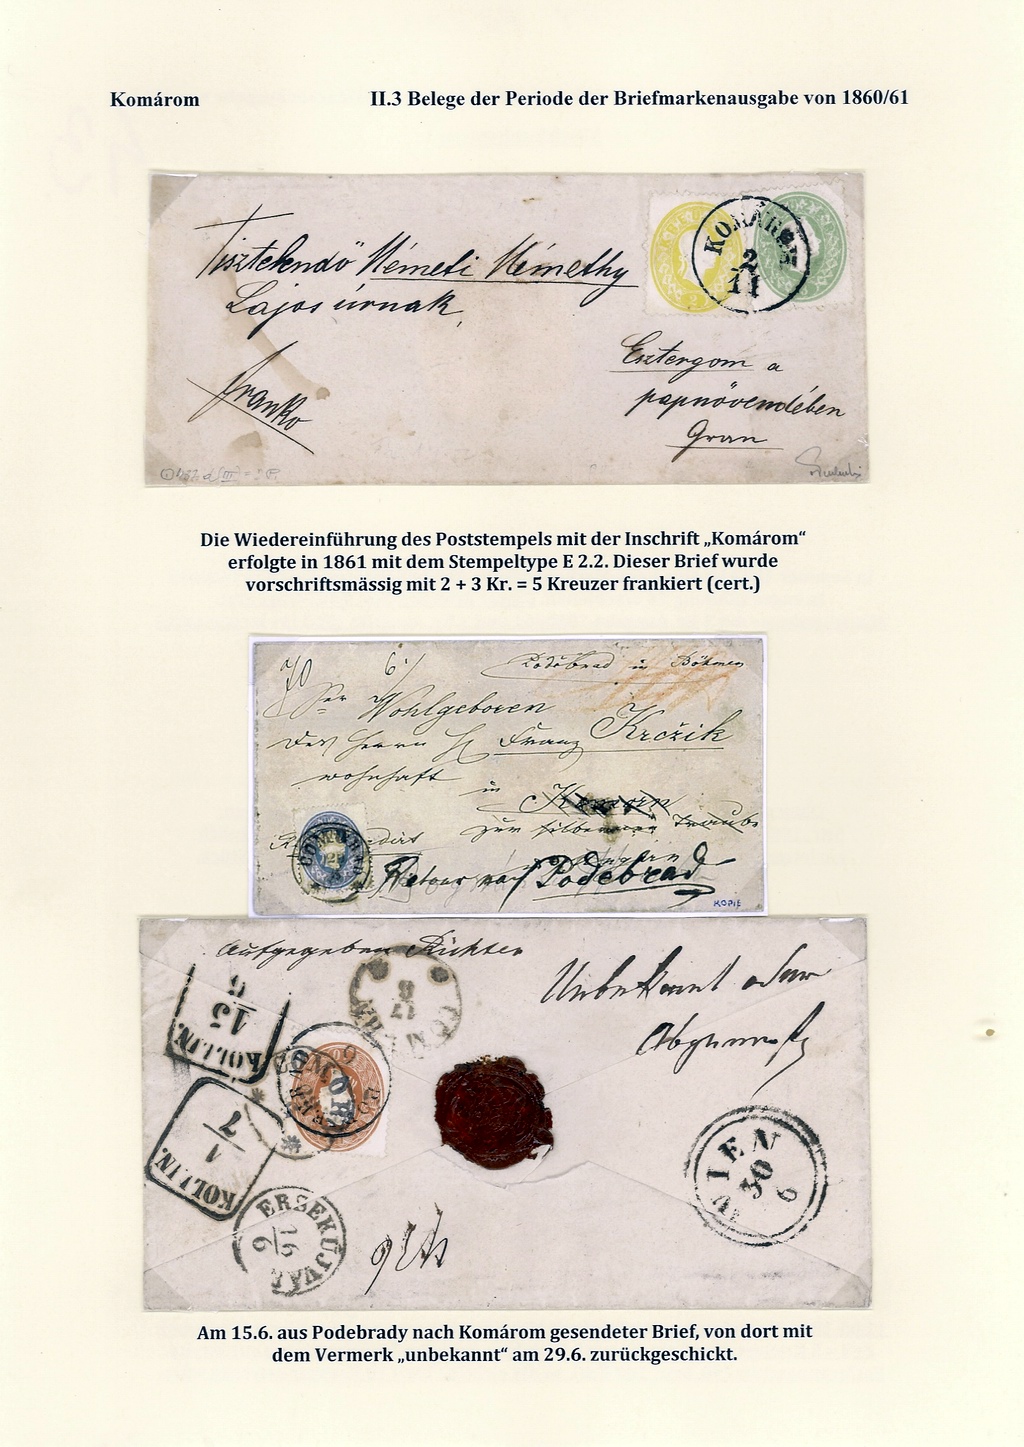 Komárom
II.3 Belege der Periode der Briefmarkenausgabe von 1860/61
Tisztelendő Németi Némethy
Lajos úrnak,
franko
Esztergom a
papnövendében
Gran
KOMÁROM
2
11
Die Wiedereinführung des Poststempels mit der Inschrift „Komárom“
erfolgte in 1861 mit dem Stempeltype E 2.2. Dieser Brief wurde
vorschriftsmässig mit 2 + 3 Kr. = 5 Kreuzer frankiert (cert.)
Podèbrad in Böhmen
Wohlgeboren
Franz Krczik
wohnhaft
in Komorn
Retour nach Podebrad
KOPIE
Aufgegeben Richter
Unbekannt oder
KOLLIN.
15
6
KOLLIN.
1
7
KOMORN
ERSEKÚJVÁR
16
6
WIEN
30
6
Am 15.6. aus Podebrady nach Komárom gesendeter Brief, von dort mit
dem Vermerk „unbekannt“ am 29.6. zurückgeschickt.